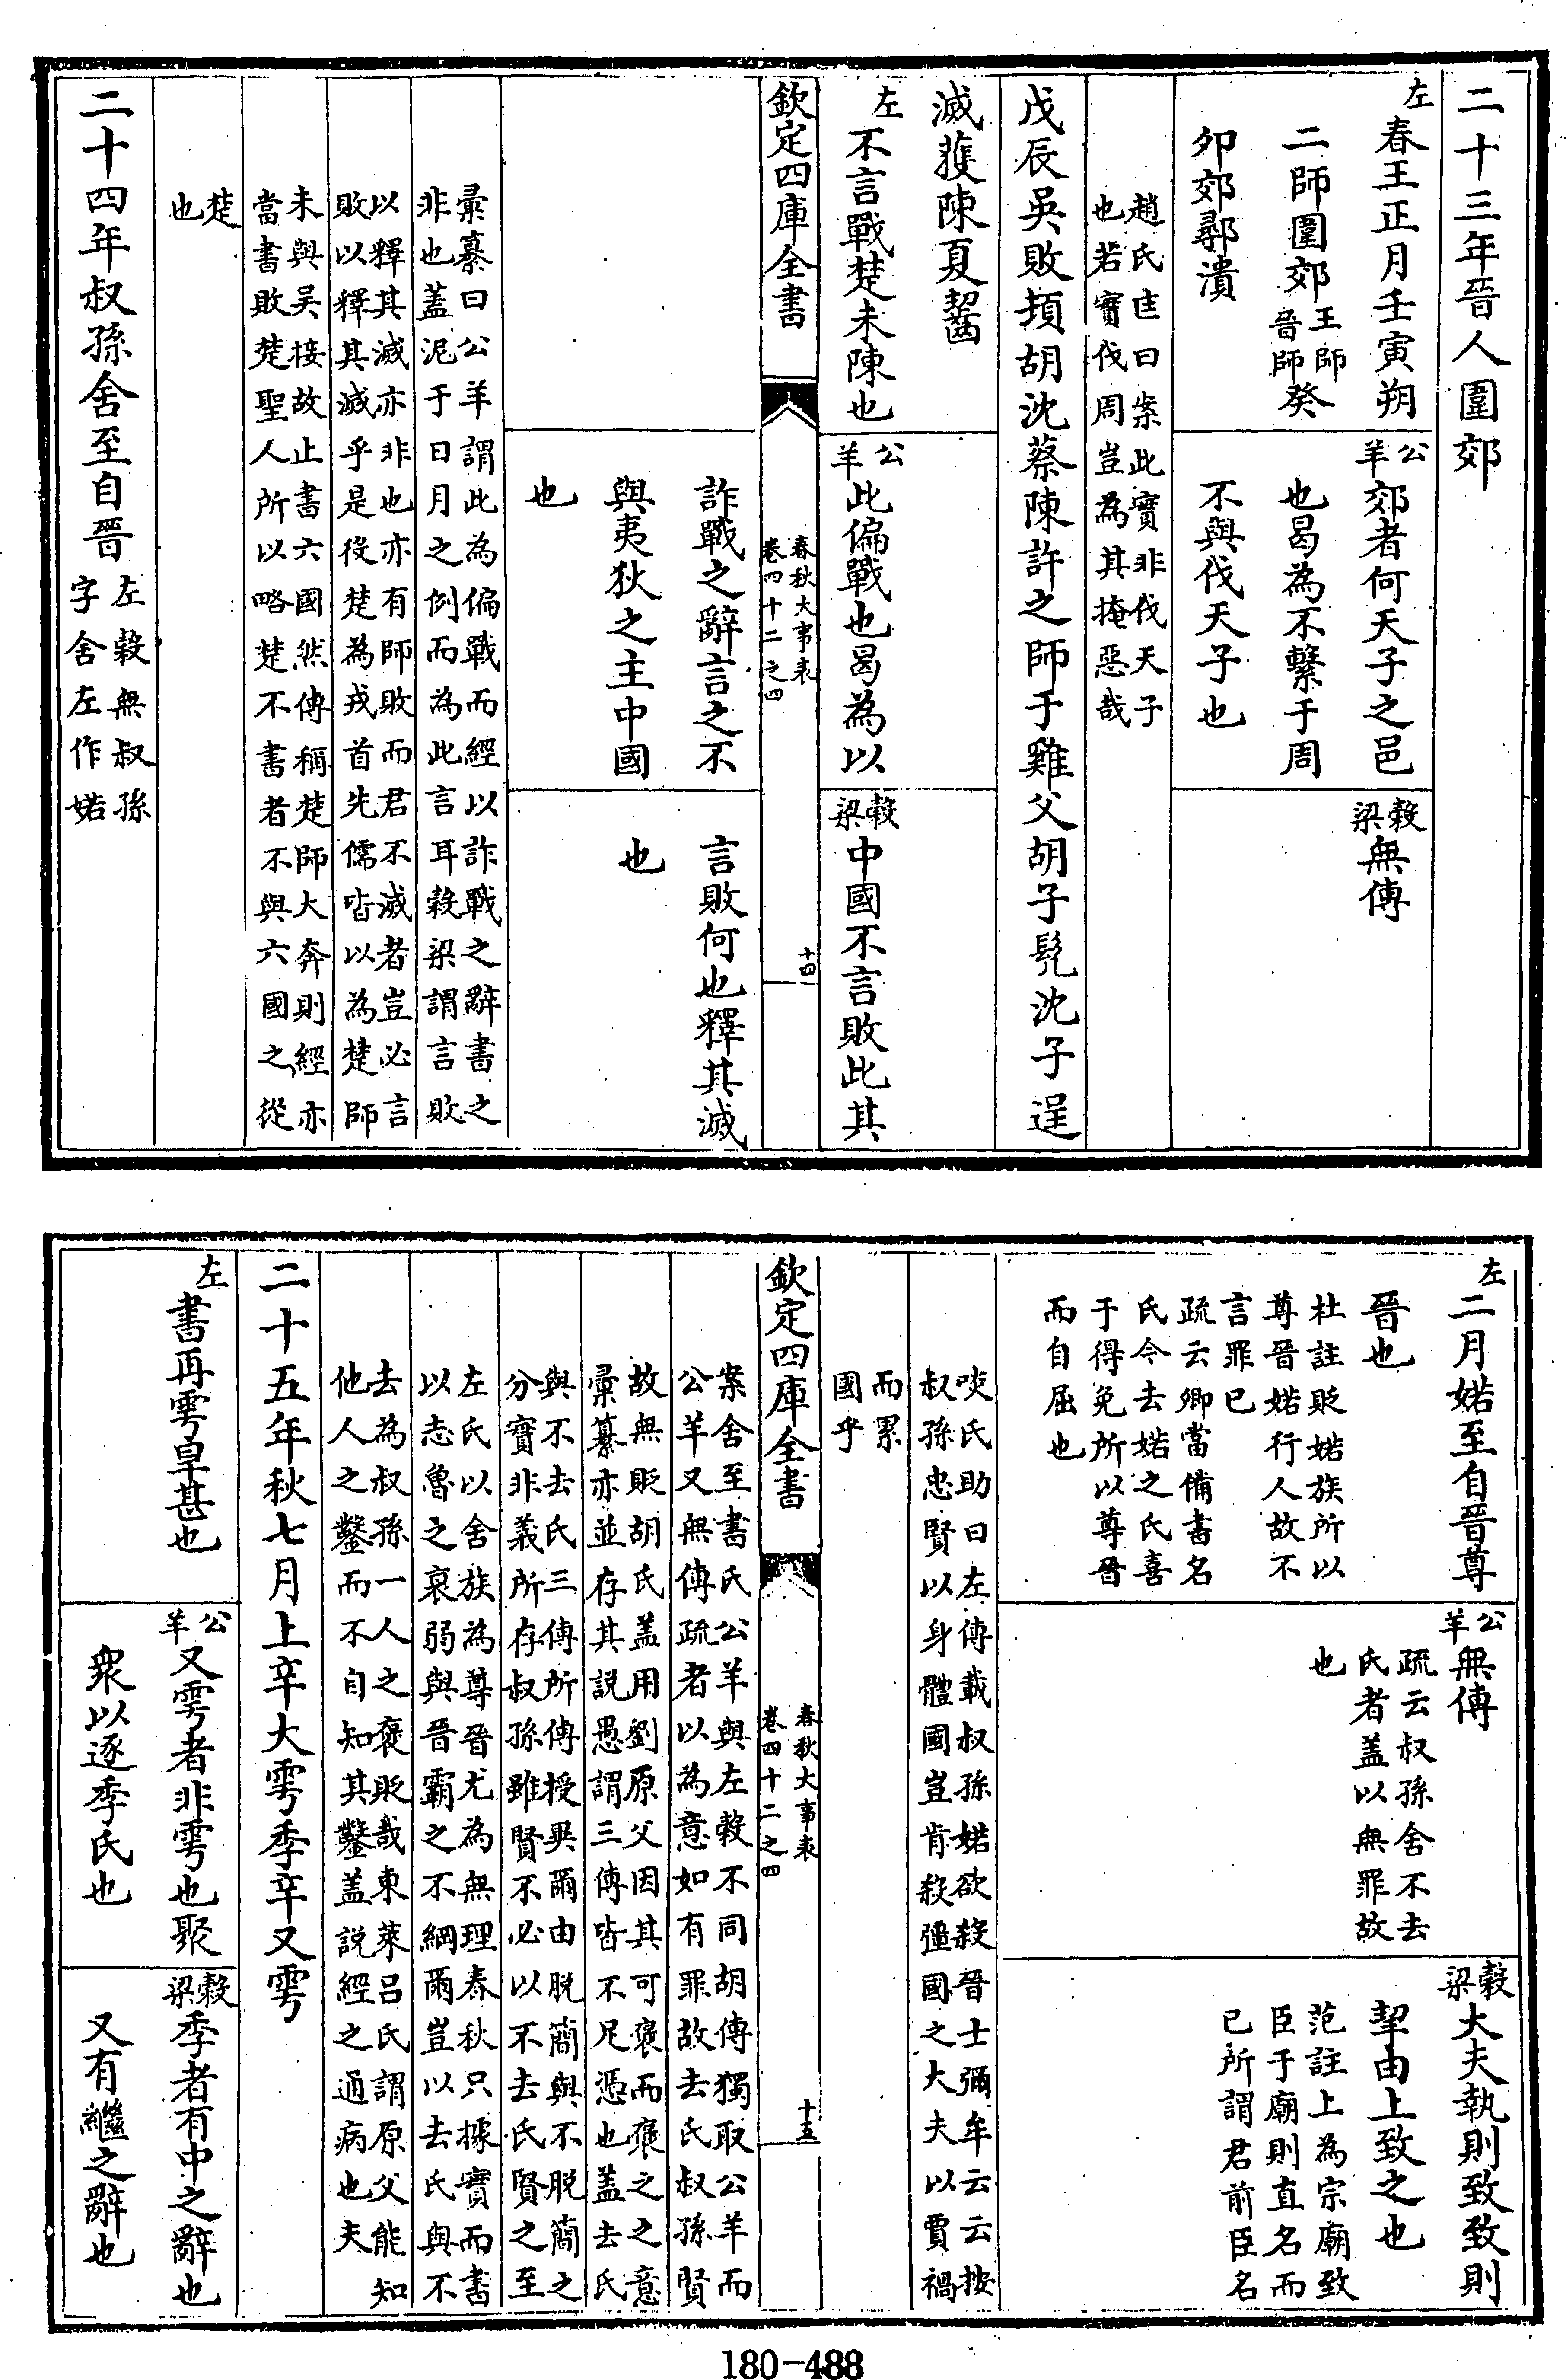 二十三年晉人圍郊
左
春王正月壬寅朔
二師圍郊王師晉師癸
夘郊鄩潰
公羊
郊者何天子之邑
也曷為不繫于周
不與伐天子也
穀梁
無傳
趙氏匡曰案此實非伐天子
也若實伐周豈為其掩惡哉
戊辰吳敗頓胡沈蔡陳許之師于雞父胡子髠沈子逞
滅獲陳夏齧
左
不言戰楚未陳也
公羊
此偏戰也曷為以
穀梁
中國不言敗此其
欽定四庫全書
春秋大事表
卷四十二之四
十四
詐戰之辭言之不
與夷狄之主中國
也
言敗何也釋其滅
也
彚纂曰公羊謂此為偏戰而經以詐戰之辭書之
非也蓋泥于日月之例而為此言耳穀梁謂言敗
以釋其滅亦非也亦有師敗而君不滅者豈必言
敗以釋其滅乎是役楚為戎首先儒皆以為楚師
未與吳接故止書六國然傳稱楚師大奔則經亦
當書敗楚聖人所以略楚不書者不與六國之從
楚
也
二十四年叔孫舍至自晉左穀無叔孫字舍左作婼
左
二月婼至自晉尊
晉也
杜註貶婼族所以
尊晉婼行人故不
言罪已
疏云卿當備書名
氏今去婼之氏喜
于得免所以尊晉
而自屈也
公羊
無傳
疏云叔孫舍不去
氏者蓋以無罪故
也
穀梁
大夫執則致致則
挈由上致之也
范註上為宗廟致
臣于廟則直名而
已所謂君前臣名
啖氏助曰左傳載叔孫婼欲殺晉士彌牟云云按
叔孫忠賢以身體國豈肯殺彊國之大夫以賈禍
而累
國乎
欽定四庫全書
春秋大事表
卷四十二之四
十五
案舍至書氏公羊與左穀不同胡傳獨取公羊而
公羊又無傳疏者以為意如有罪故去氏叔孫賢
故無貶胡氏蓋用劉原父因其可褒而褒之之意
彚纂亦並存其説愚謂三傳皆不足憑也蓋去氏
與不去氏三傳所傳授異爾由脱簡與不脱簡之
分實非義所存叔孫雖賢不必以不去氏賢之至
左氏以舍族為尊晉尤為無理春秋只據實而書
以志魯之衰弱與晉霸之不綱爾豈以去氏與不
去為叔孫一人之褒貶哉東萊吕氏謂原父能知
他人之鑿而不自知其鑿蓋説經之通病也夫
二十五年秋七月上辛大雩季辛又雩
左
書再雩旱甚也
公羊
又雩者非雩也聚
衆以逐季氏也
穀梁
季者有中之辭也
又有繼之辭也
180-488